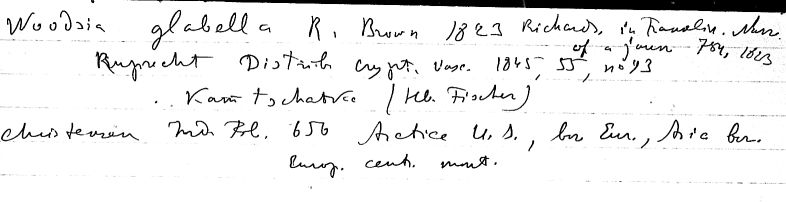 Woodsia glabella R. Brown 1823 Richards. in Franklin. Narr.
of a journ 754, 1823
Ruprecht Distrib crypt. vasc. 1845, 55, no 93
. Kamtschatka (Hb. Fischer)
Christensen Ind. Fil. 656 Arctice U.S., bor Eur., Asia bor.
Europ. centr. mont.